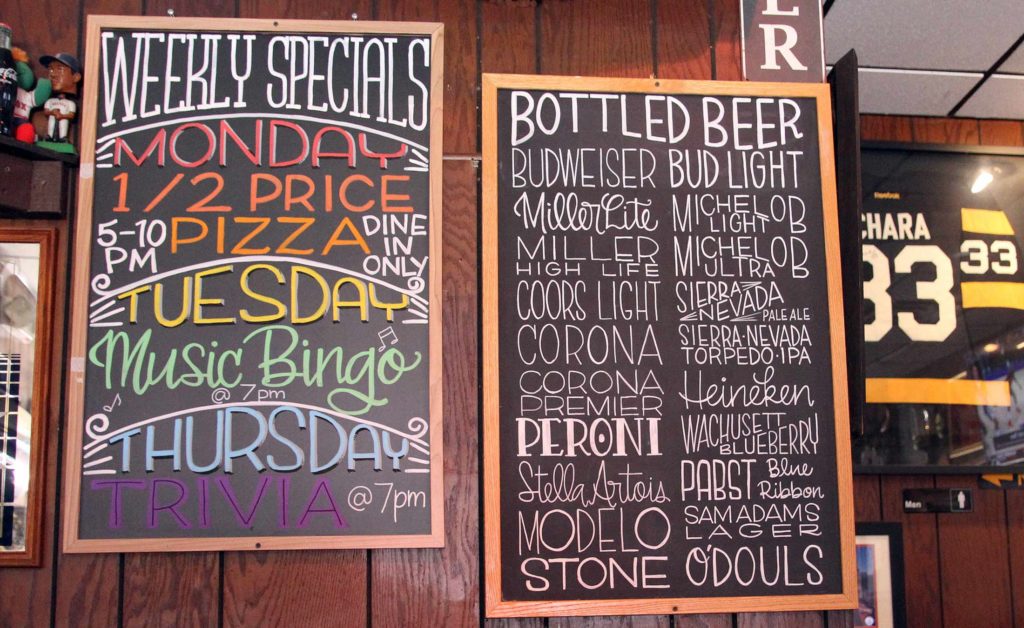 WEEKLY SPECIALS
MONDAY
1/2 PRICE
5-10 PM PIZZA DINE IN ONLY
TUESDAY
Music Bingo
@ 7pm
THURSDAY
TRIVIA @ 7pm
BOTTLED BEER
BUDWEISER
Miller Lite
MILLER
HIGH LIFE
COORS LIGHT
CORONA
CORONA
PREMIER
PERONI
Stella Artois
MODELO
STONE
BUD LIGHT
MICHELOB
LIGHT
MICHELOB
ULTRA
SIERRA
NEVADA
PALE ALE
SIERRA·NEVADA
TORPEDO·IPA
Heineken
WACHUSETT
BLUEBERRY
PABST Blue
Ribbon
SAM ADAMS
LAGER
O'DOULS
ER
Reebok
CHARA
33
33
Men